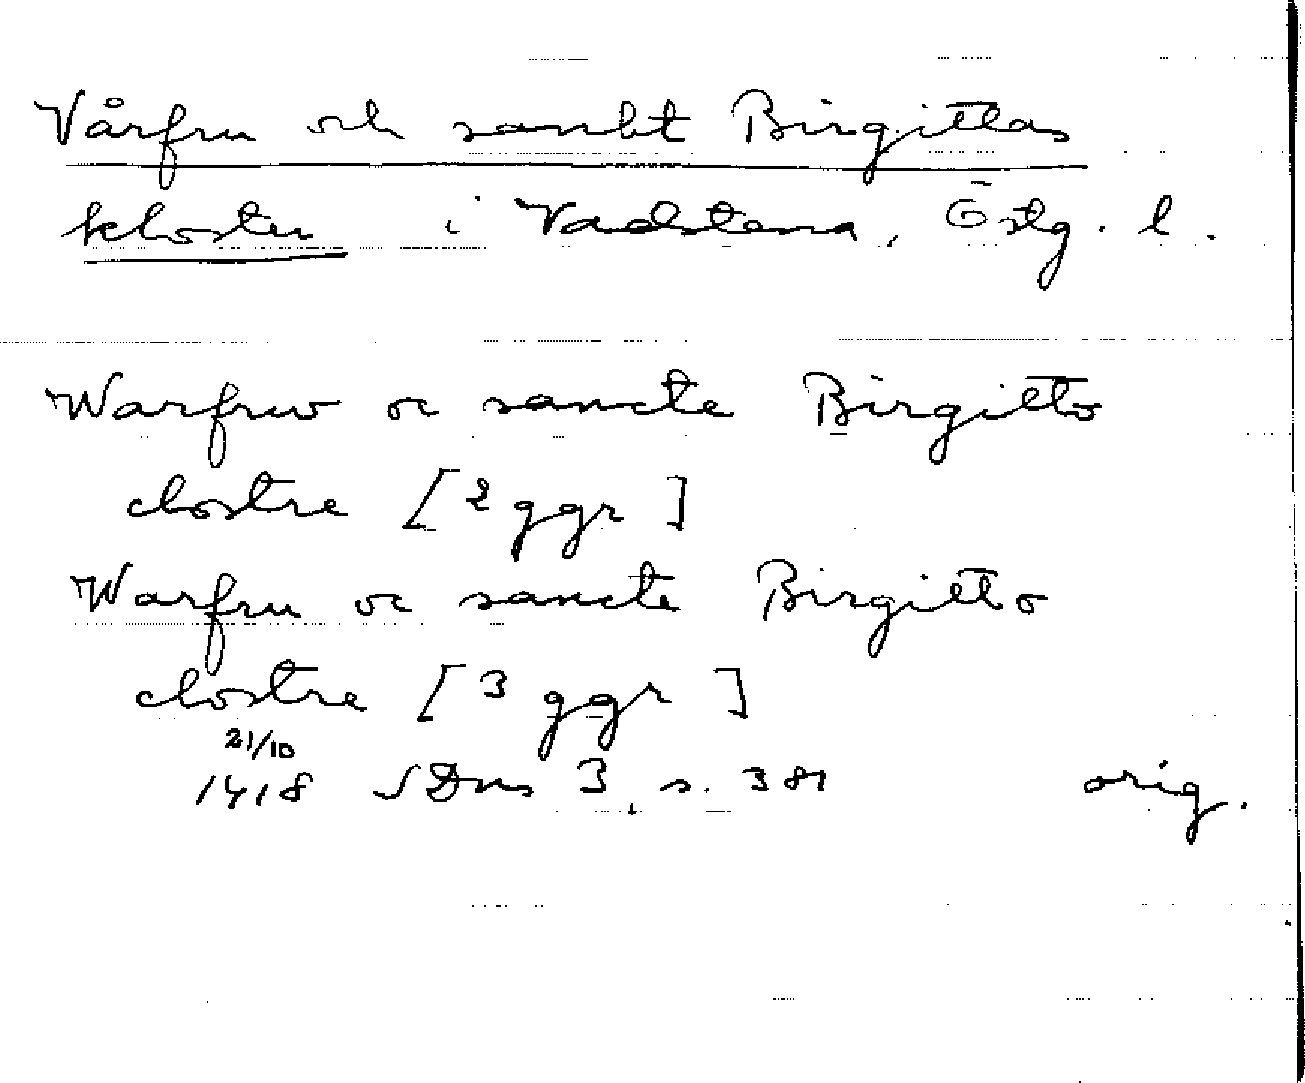 Vårfru och sankt Birgittas
kloster i Vadstena, Östg. l.
Warfruw oc sancte Birgitto
clostre [2 ggr]
Warfru oc sancte Birgitto
clostre [3 ggr]
21/10
1418 SDns 3, s. 381 orig.